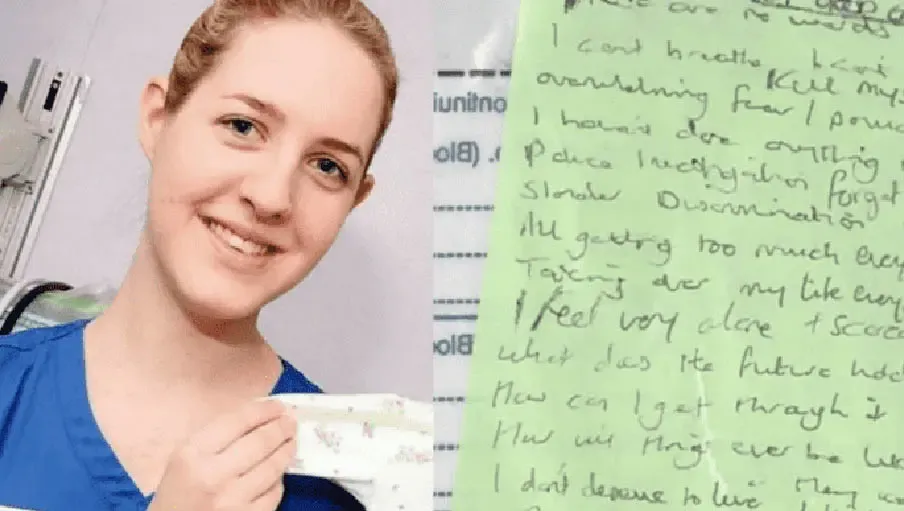 are no words
I can't breathe I can't
Kill mys
overwhelming fear /
I haven't done anything
Police Investigation forget
Slander Discrimination
All getting too much every
Taking over my life every
I feel very alone + scared
What does the future hold
How can I get through it
How will things ever be like
I don't deserve to live